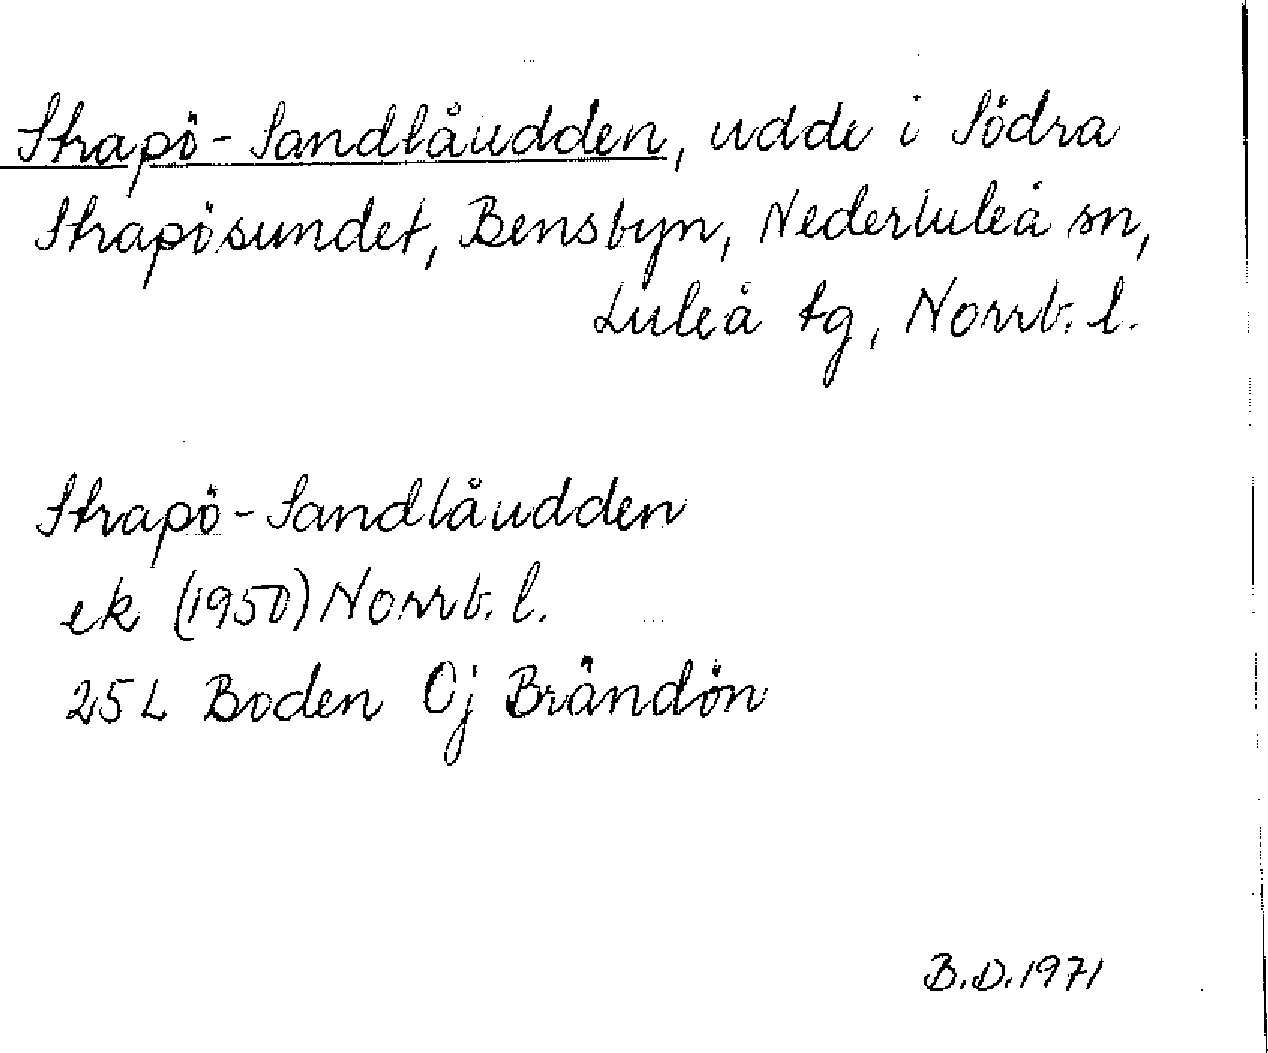 Strapö-Sandlåudden, udde i Södra
Strapösundet, Bensbyn, Nederluleå sn,
Luleå tg, Norrb. l.
Strapö-Sandlåudden
ek (1950) Norrb. l.
25 L Boden Oj Brändön
B.D. 1971